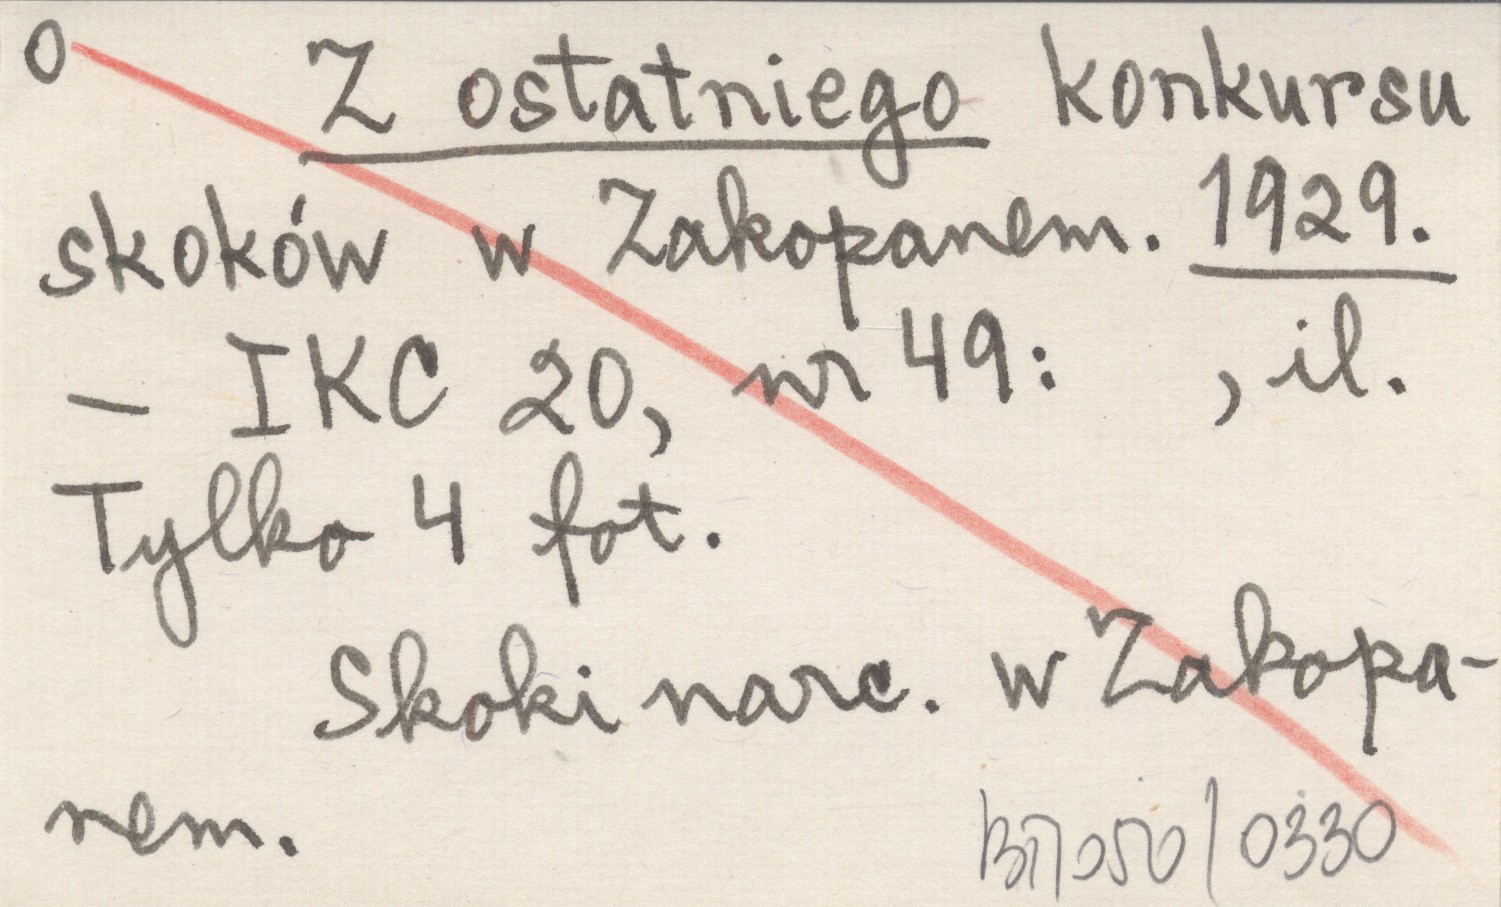 0 Z ostatniego konkursu
skoków w Zakopanem. 1929.
- IKC 20, nr 49: , il.
Tylko 4 fot.
Skoki narc. w Zakopa-
nem.
0330